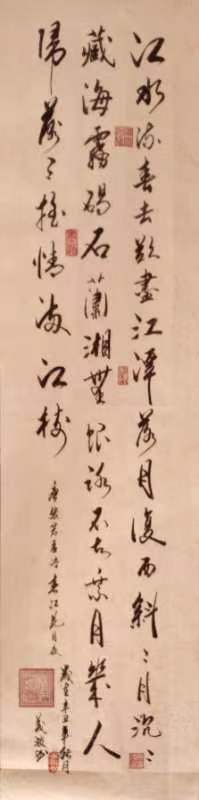 江水流春去欲盡江潭落月復西斜〻月沉〻
藏海霧碣石蕭湘無限路不知乘月幾人
歸落月搖情滿江樹
唐張若虛詩春江花月夜
歲在辛丑年秋月